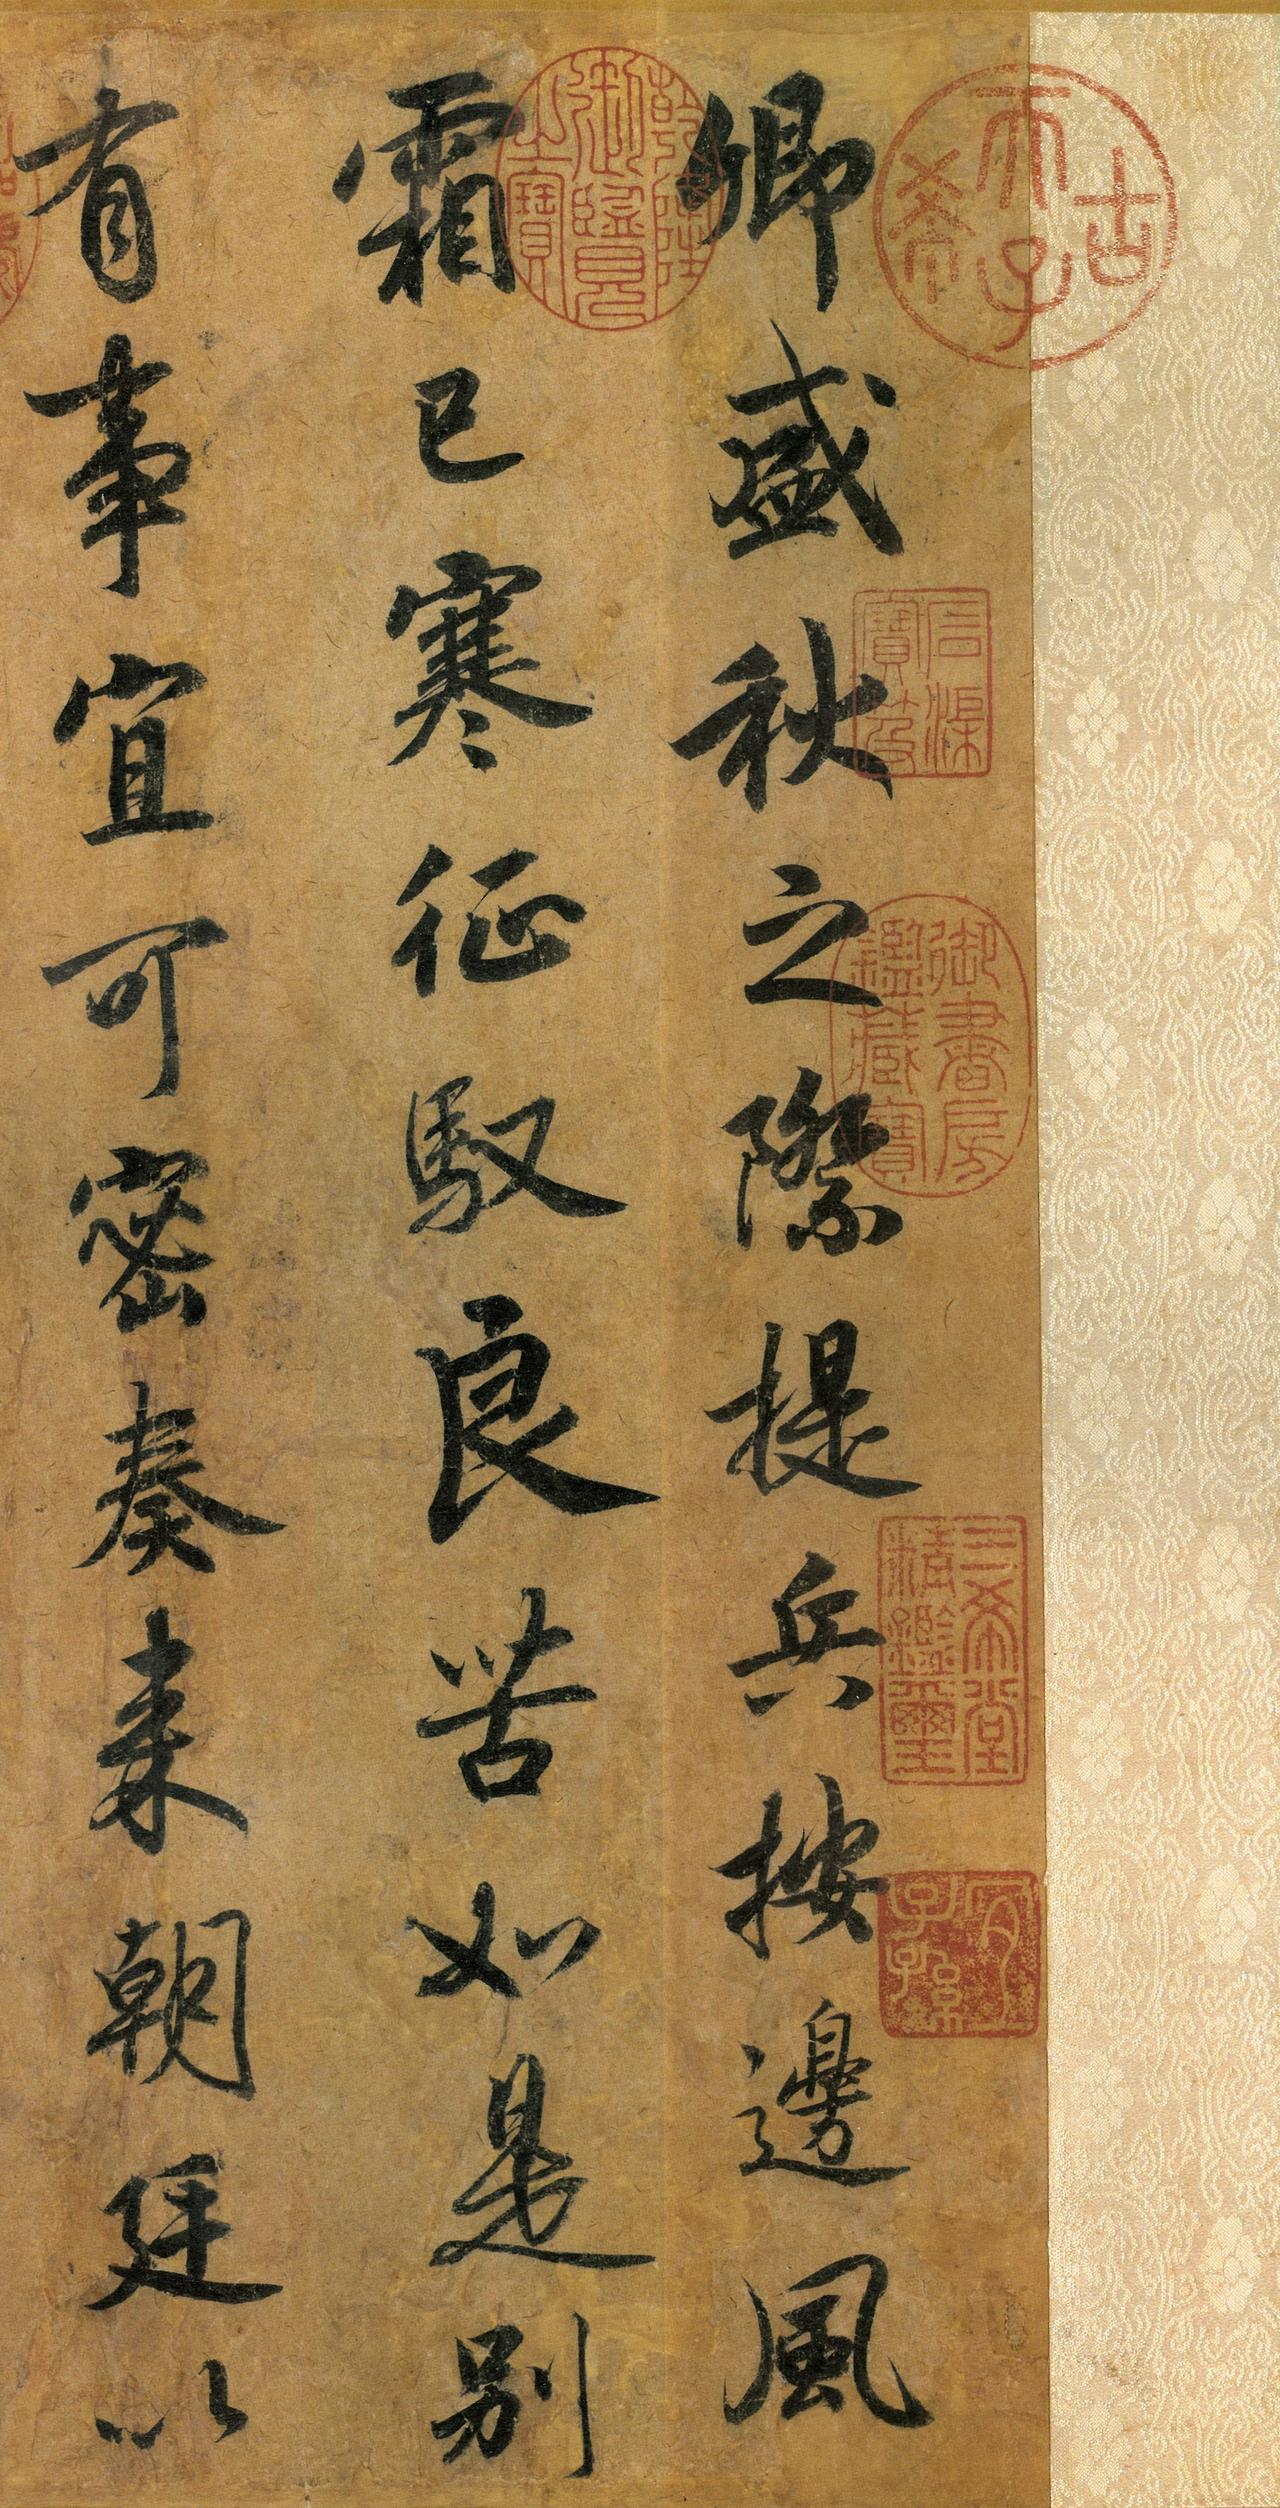 卿盛秋之際提兵按邊風
霜已寒征馭良苦如是別
有事宜可密奏來朝廷以
古希天子
乾隆御覽之寶
石渠寶笈
御書房鑑藏寶
三希堂精鑑璽
宜子孫